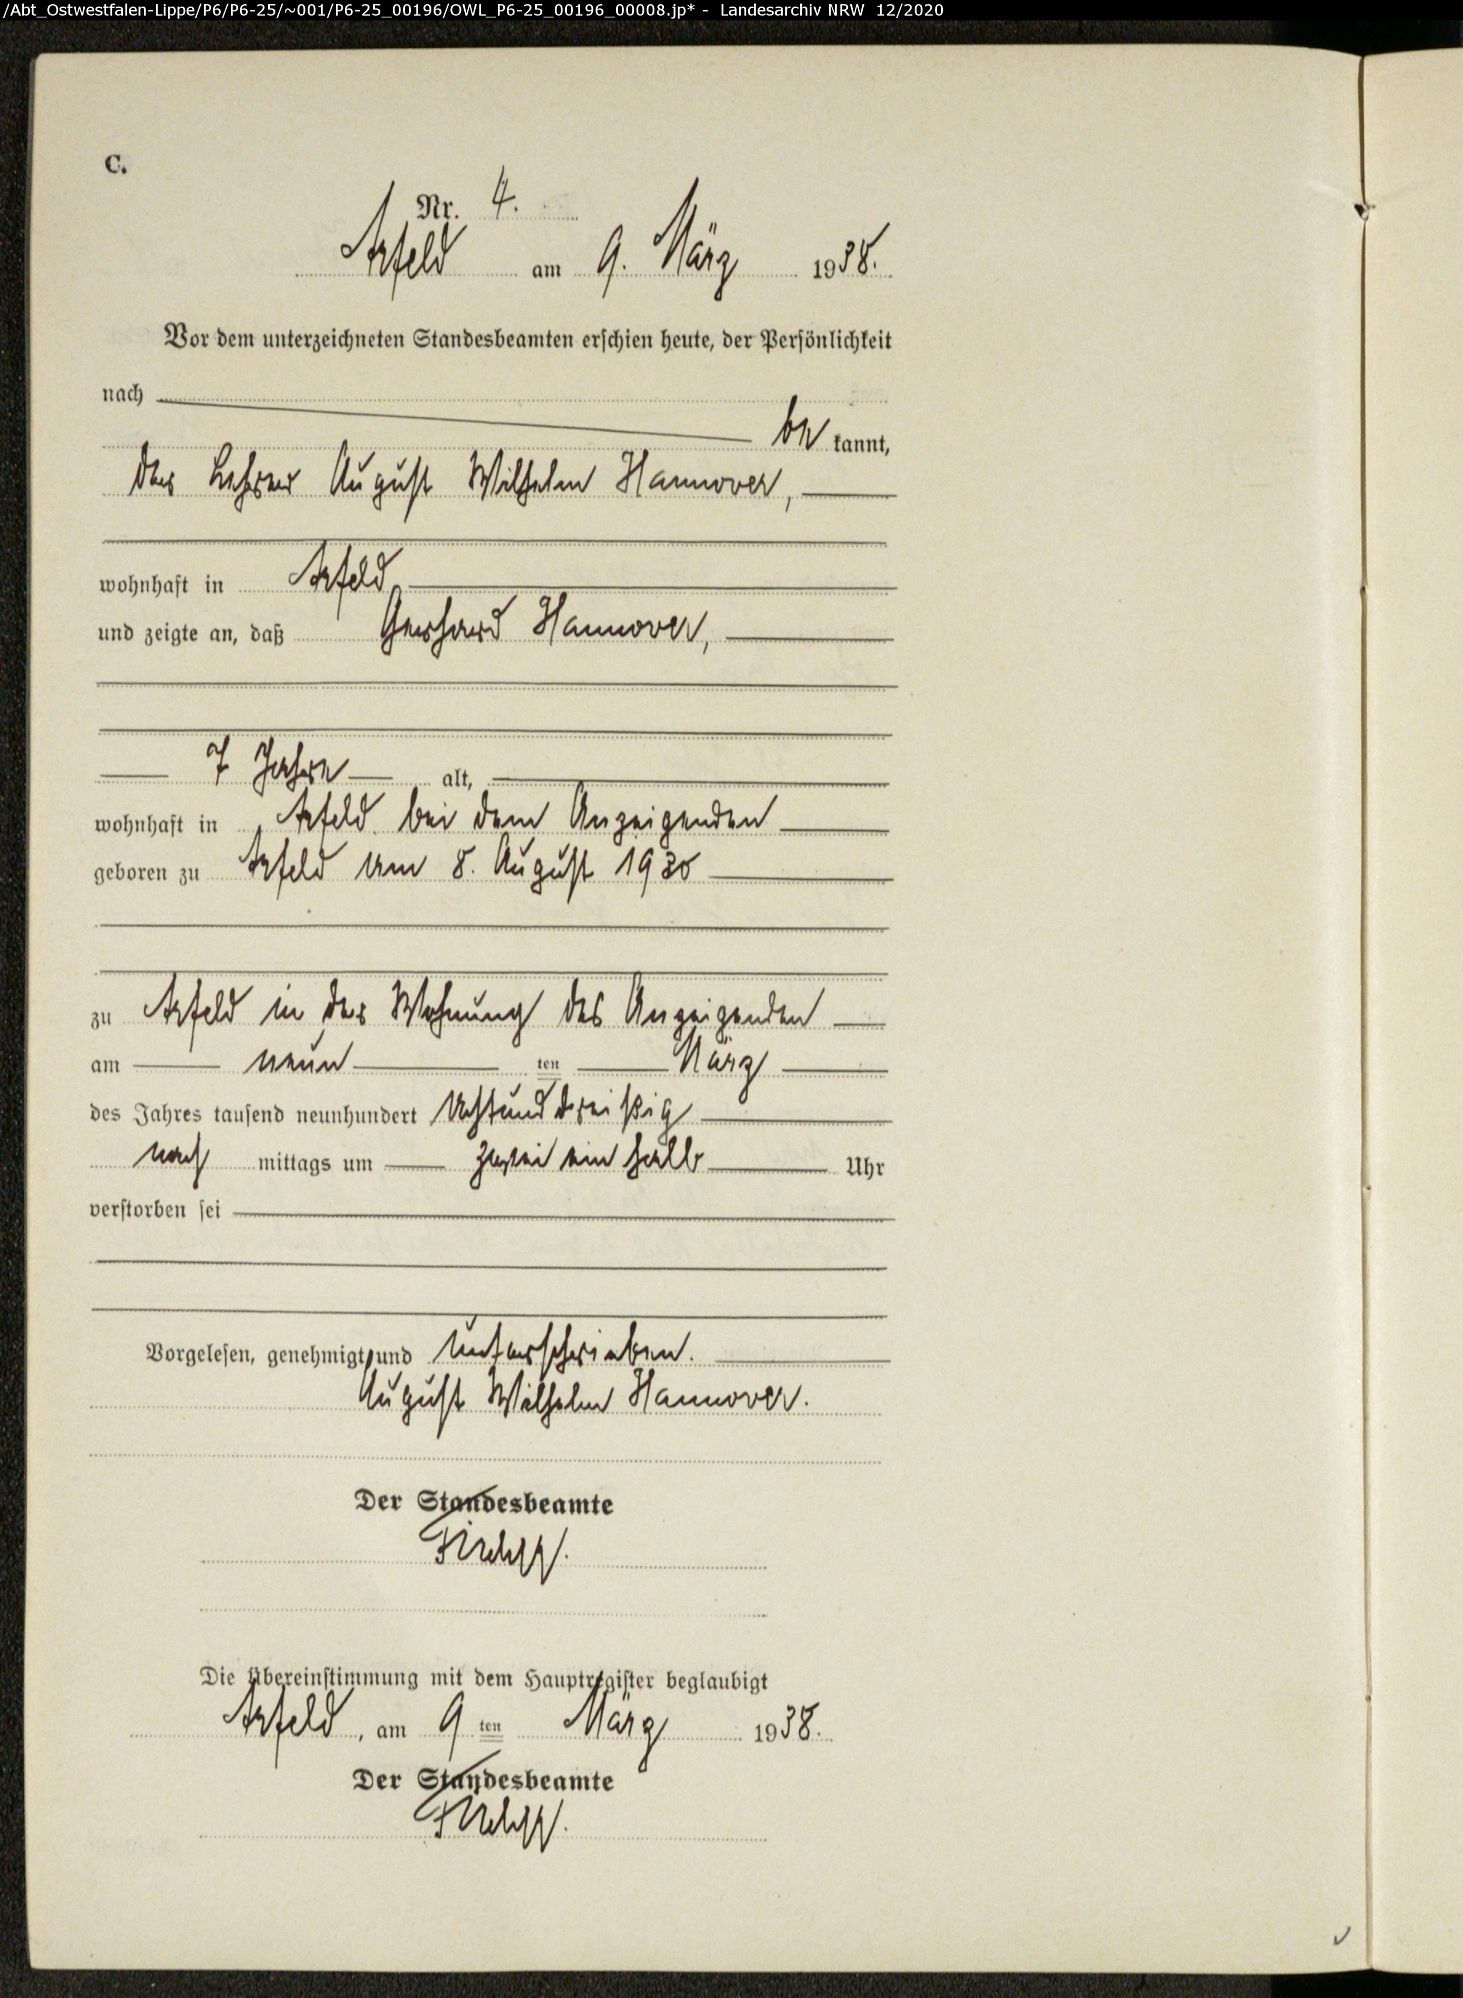 /Abt_Ostwestfalen-Lippe/P6/P6-25/~001/P6-25_00196/OWL_P6-25_00196_00008.jp* - Landesarchiv NRW 12/2020
C.
Nr. 4.
Arfeld am 9. März 1938.
Vor dem unterzeichneten Standesbeamten erschien heute, der Persönlichkeit
nach
be kannt,
der Lehrer August Wilhelm Hannover,
wohnhaft in Arfeld
und zeigte an, daß Gerhard Hannover,
7 Jahre alt,
wohnhaft in Arfeld bei dem Anzeigenden
geboren zu Arfeld am 8. August 1930
zu Arfeld in der Wohnung des Anzeigenden
am neun ten März
des Jahres tausend neunhundert achtunddreißig
nach mittags um zwei ein halb Uhr
verstorben sei
Vorgelesen, genehmigt und unterschrieben.
August Wilhelm Hannover.
Der Standesbeamte
Die Übereinstimmung mit dem Hauptregister beglaubigt
Arfeld, am 9 ten März 1938.
Der Standesbeamte